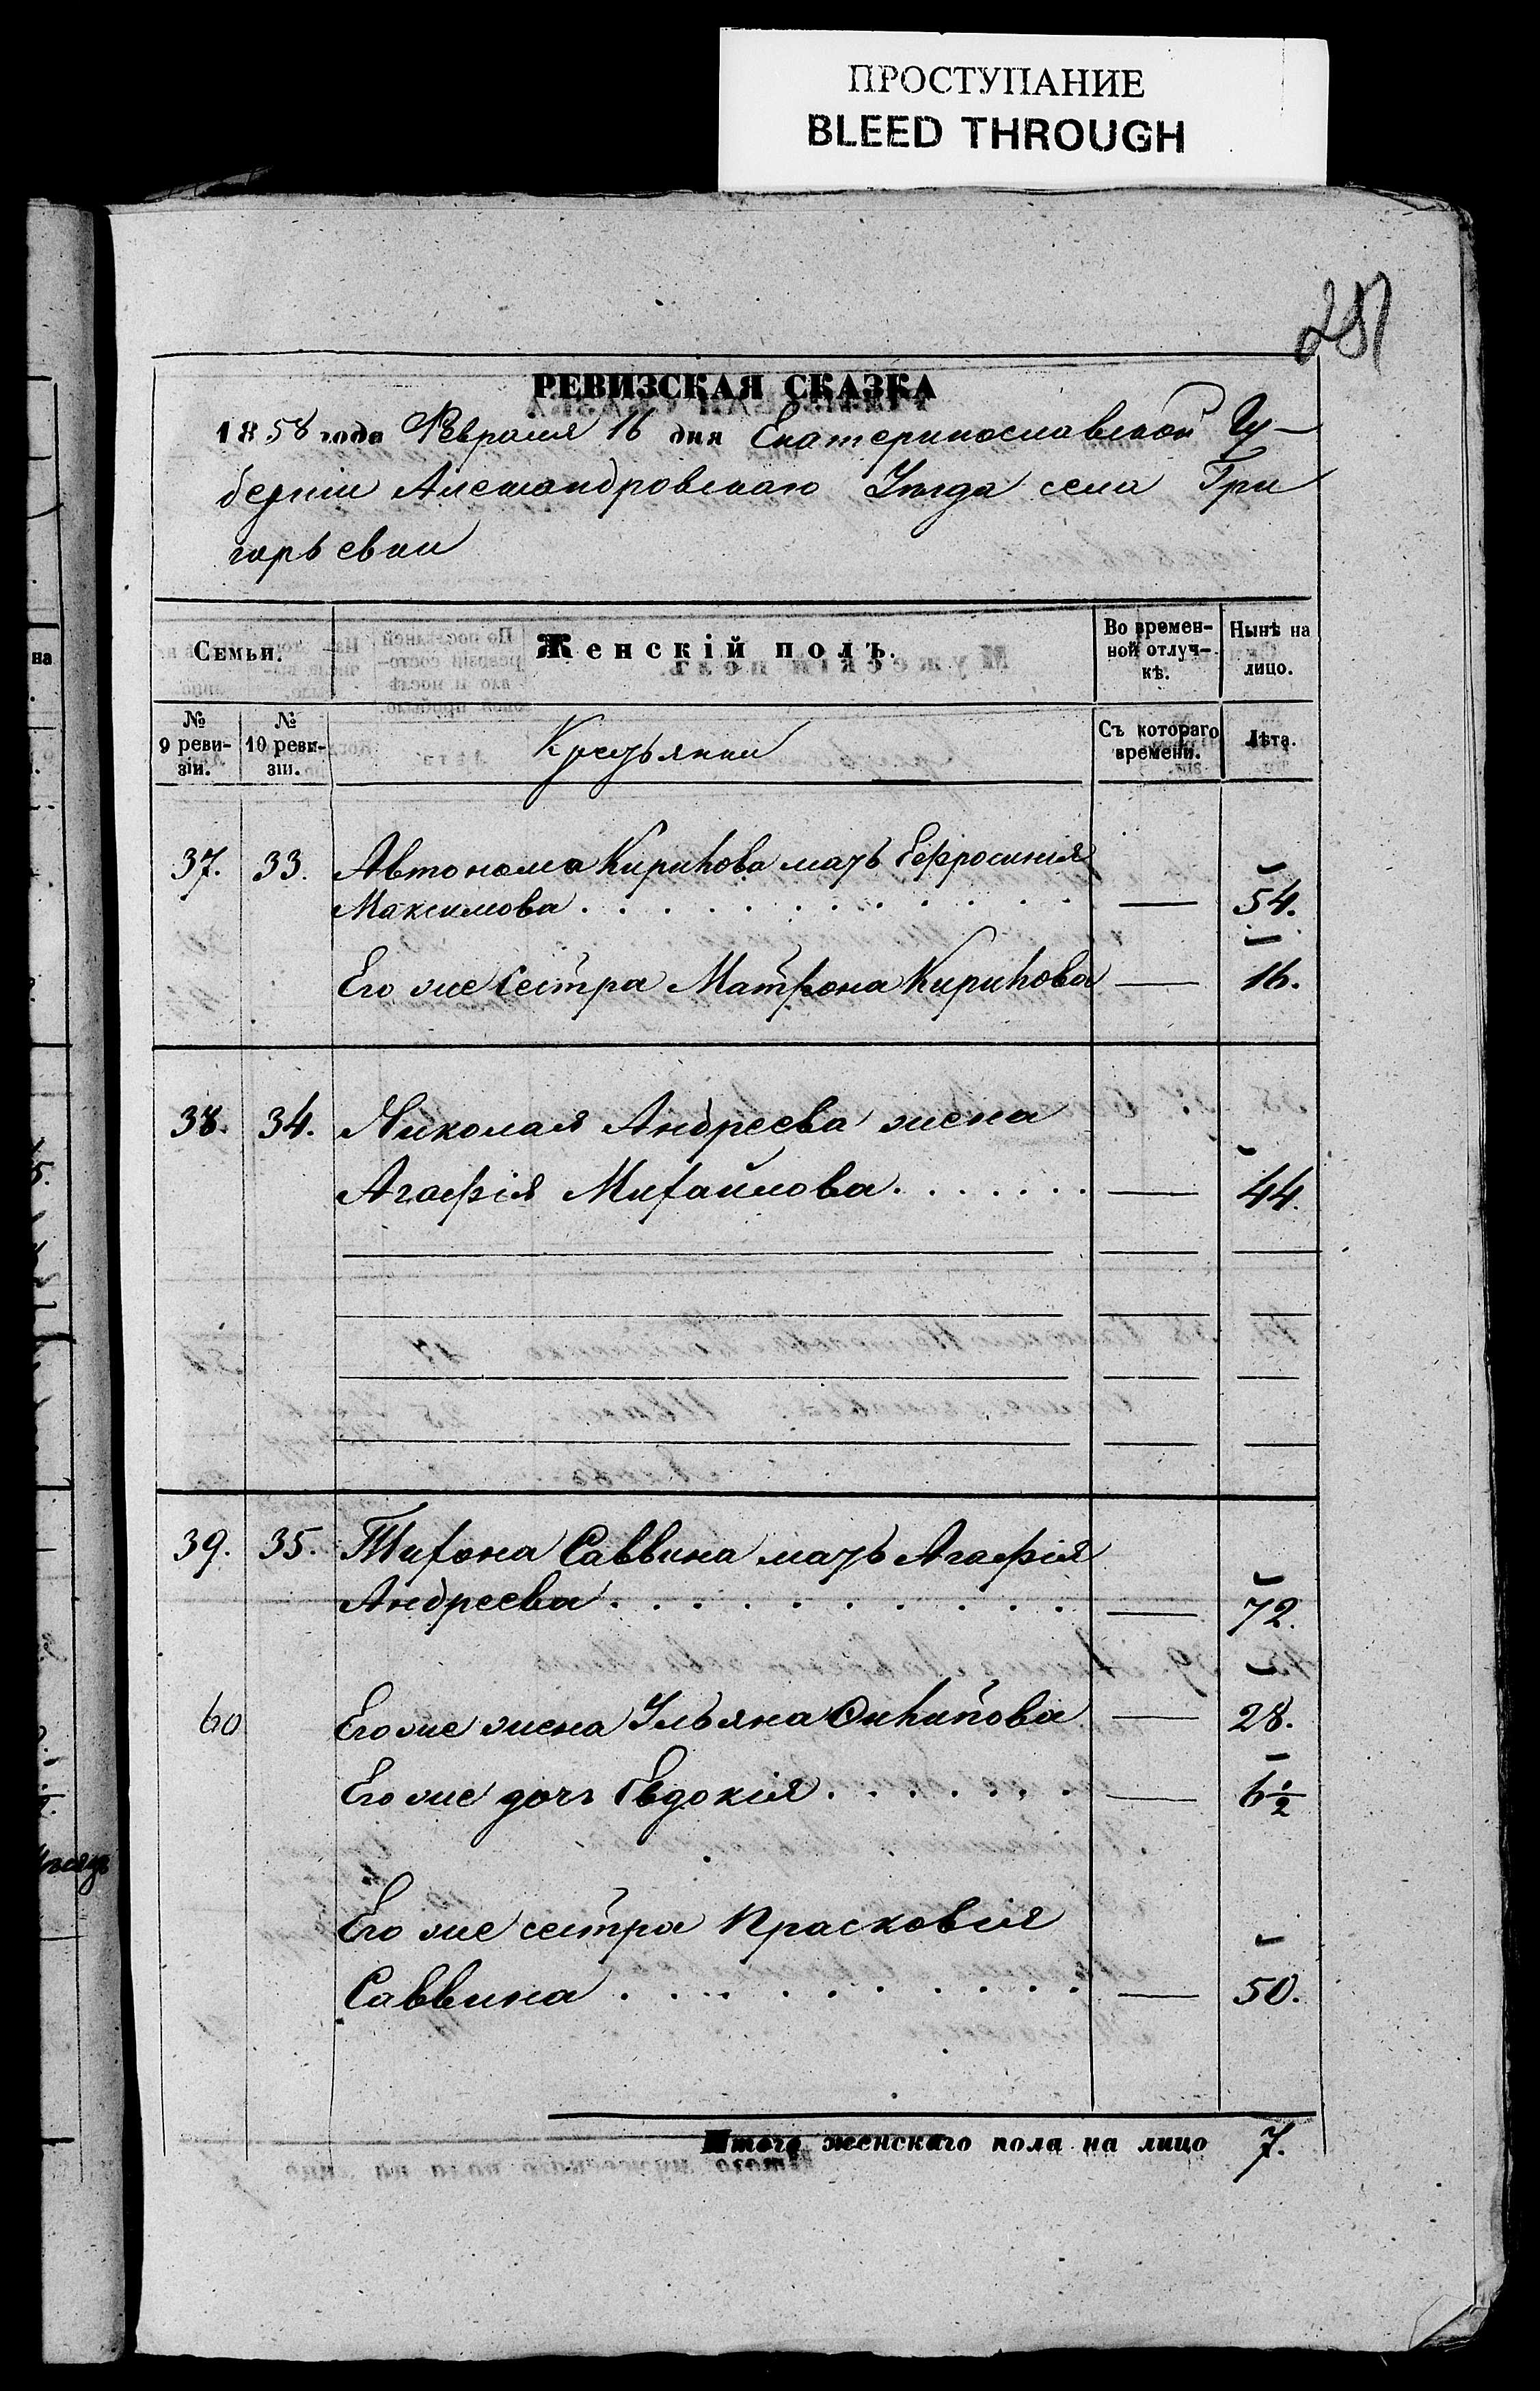 ПРОСТУПАНИЕ
BLEED THROUGH
РЕВИЗСКАЯ СКАЗКА
1858 года Февраля 16 дня Екатеринославской Гу-
берніи Александровскаго Уѣзда села Гри
горьевки
Семьи. Женскій полъ. Во времен-ной отлуч-кѣ. Нынѣ на лицо.
№ 9 реви-зіи. № 10 реви-зіи. Крестьянки Съ котораго времени. Лѣта.
37. 33. Автонома Кирикова мать Ефросинія
Максимова . . . . . . . . . . — 54.
Его же сестра Матрона Кирикова — 16.
38. 34. Николая Андреева жена
Агафія Михайлова . . . . . . . — 44.
39. 35. Тихона Саввина мать Агафія
Андреева . . . . . . . . . . — 72.
60 Его же жена Ульяна — 28.
Его же дочь Евдокія . . . . . . . — 6 1/2
Его же сестра Прасковія
Саввина . . . . . . . . . . — 50.
Итого женскаго пола на лицо 7.